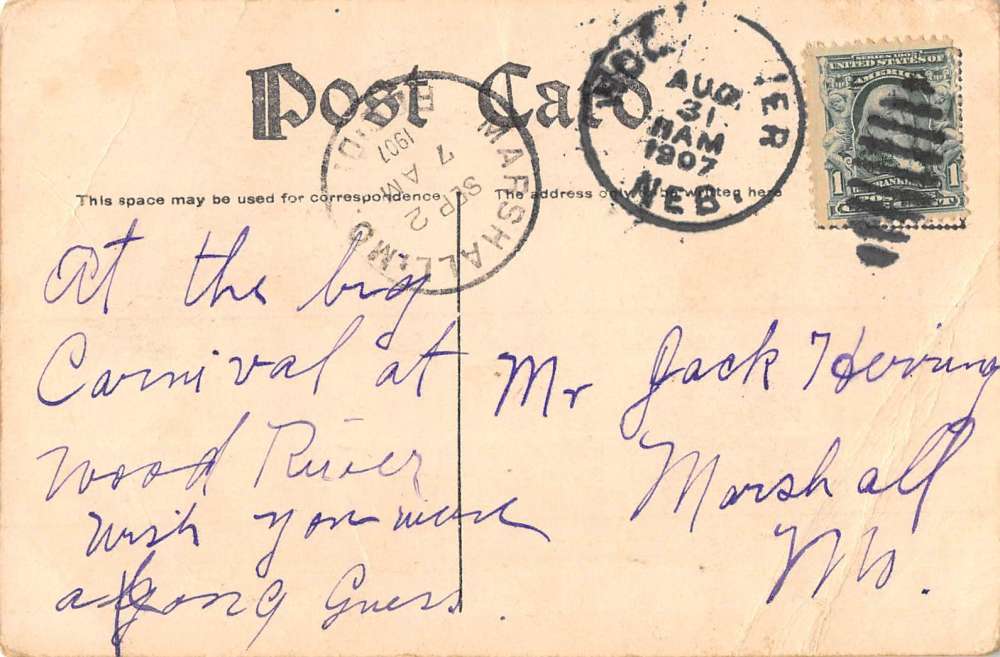 Post Card
This space may be used for correspondence
The address only to be written here
WOOD RIVER
AUG.
31
11 AM
1907
NEB.
MARSHALL, MO.
SEP 2
7 AM
1907
SERIES 1902
UNITED STATES OF
AMERICA
1 FRANKLIN 1
At the big
Carnival at
Wood River
wish you were
along Guess
Mr Jack Herring
Marshall
Mo.